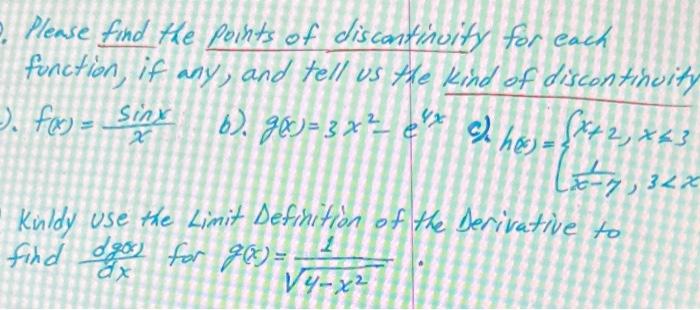 . Please find the points of discontinuity for each
function, if any, and tell us the kind of discontinuity
). f(x) = sinx/x b). g(x) = 3x² - e^4x c). h(x) = { x+2, x≤3
1/(x-7), 3<x
Kinldy use the Limit Definition of the Derivative to
find dg(x)/dx for g(x) = 1/√(4-x²) .